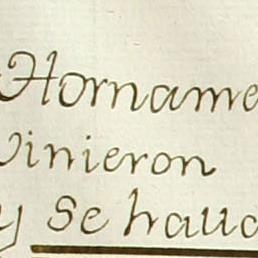 Horname
vinieron
y se haua